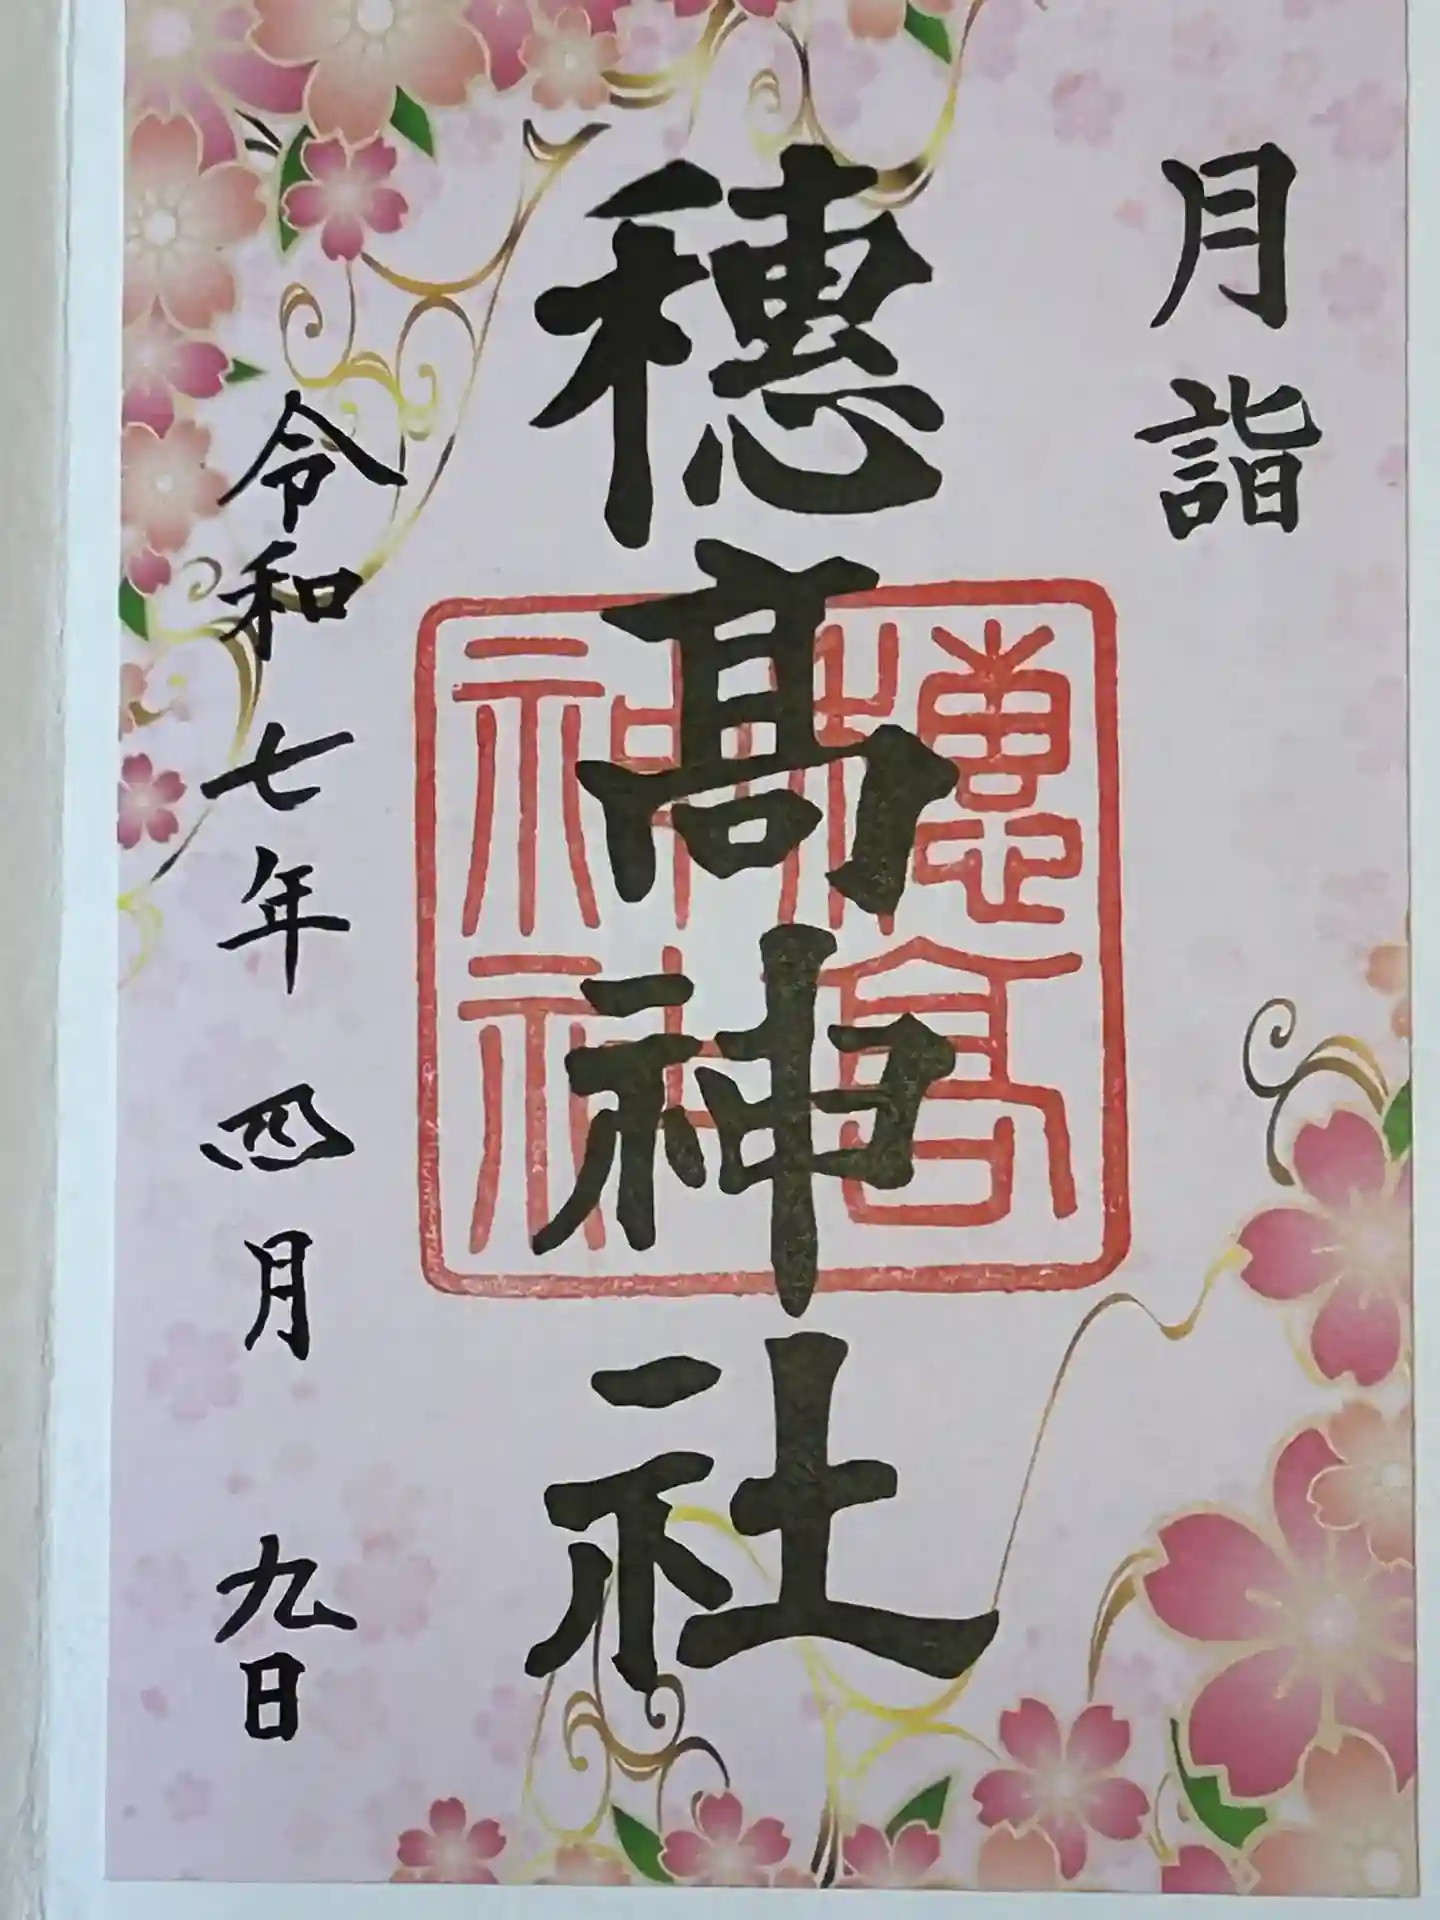 月詣
穂髙神社
穂髙
神社
令和七年四月九日